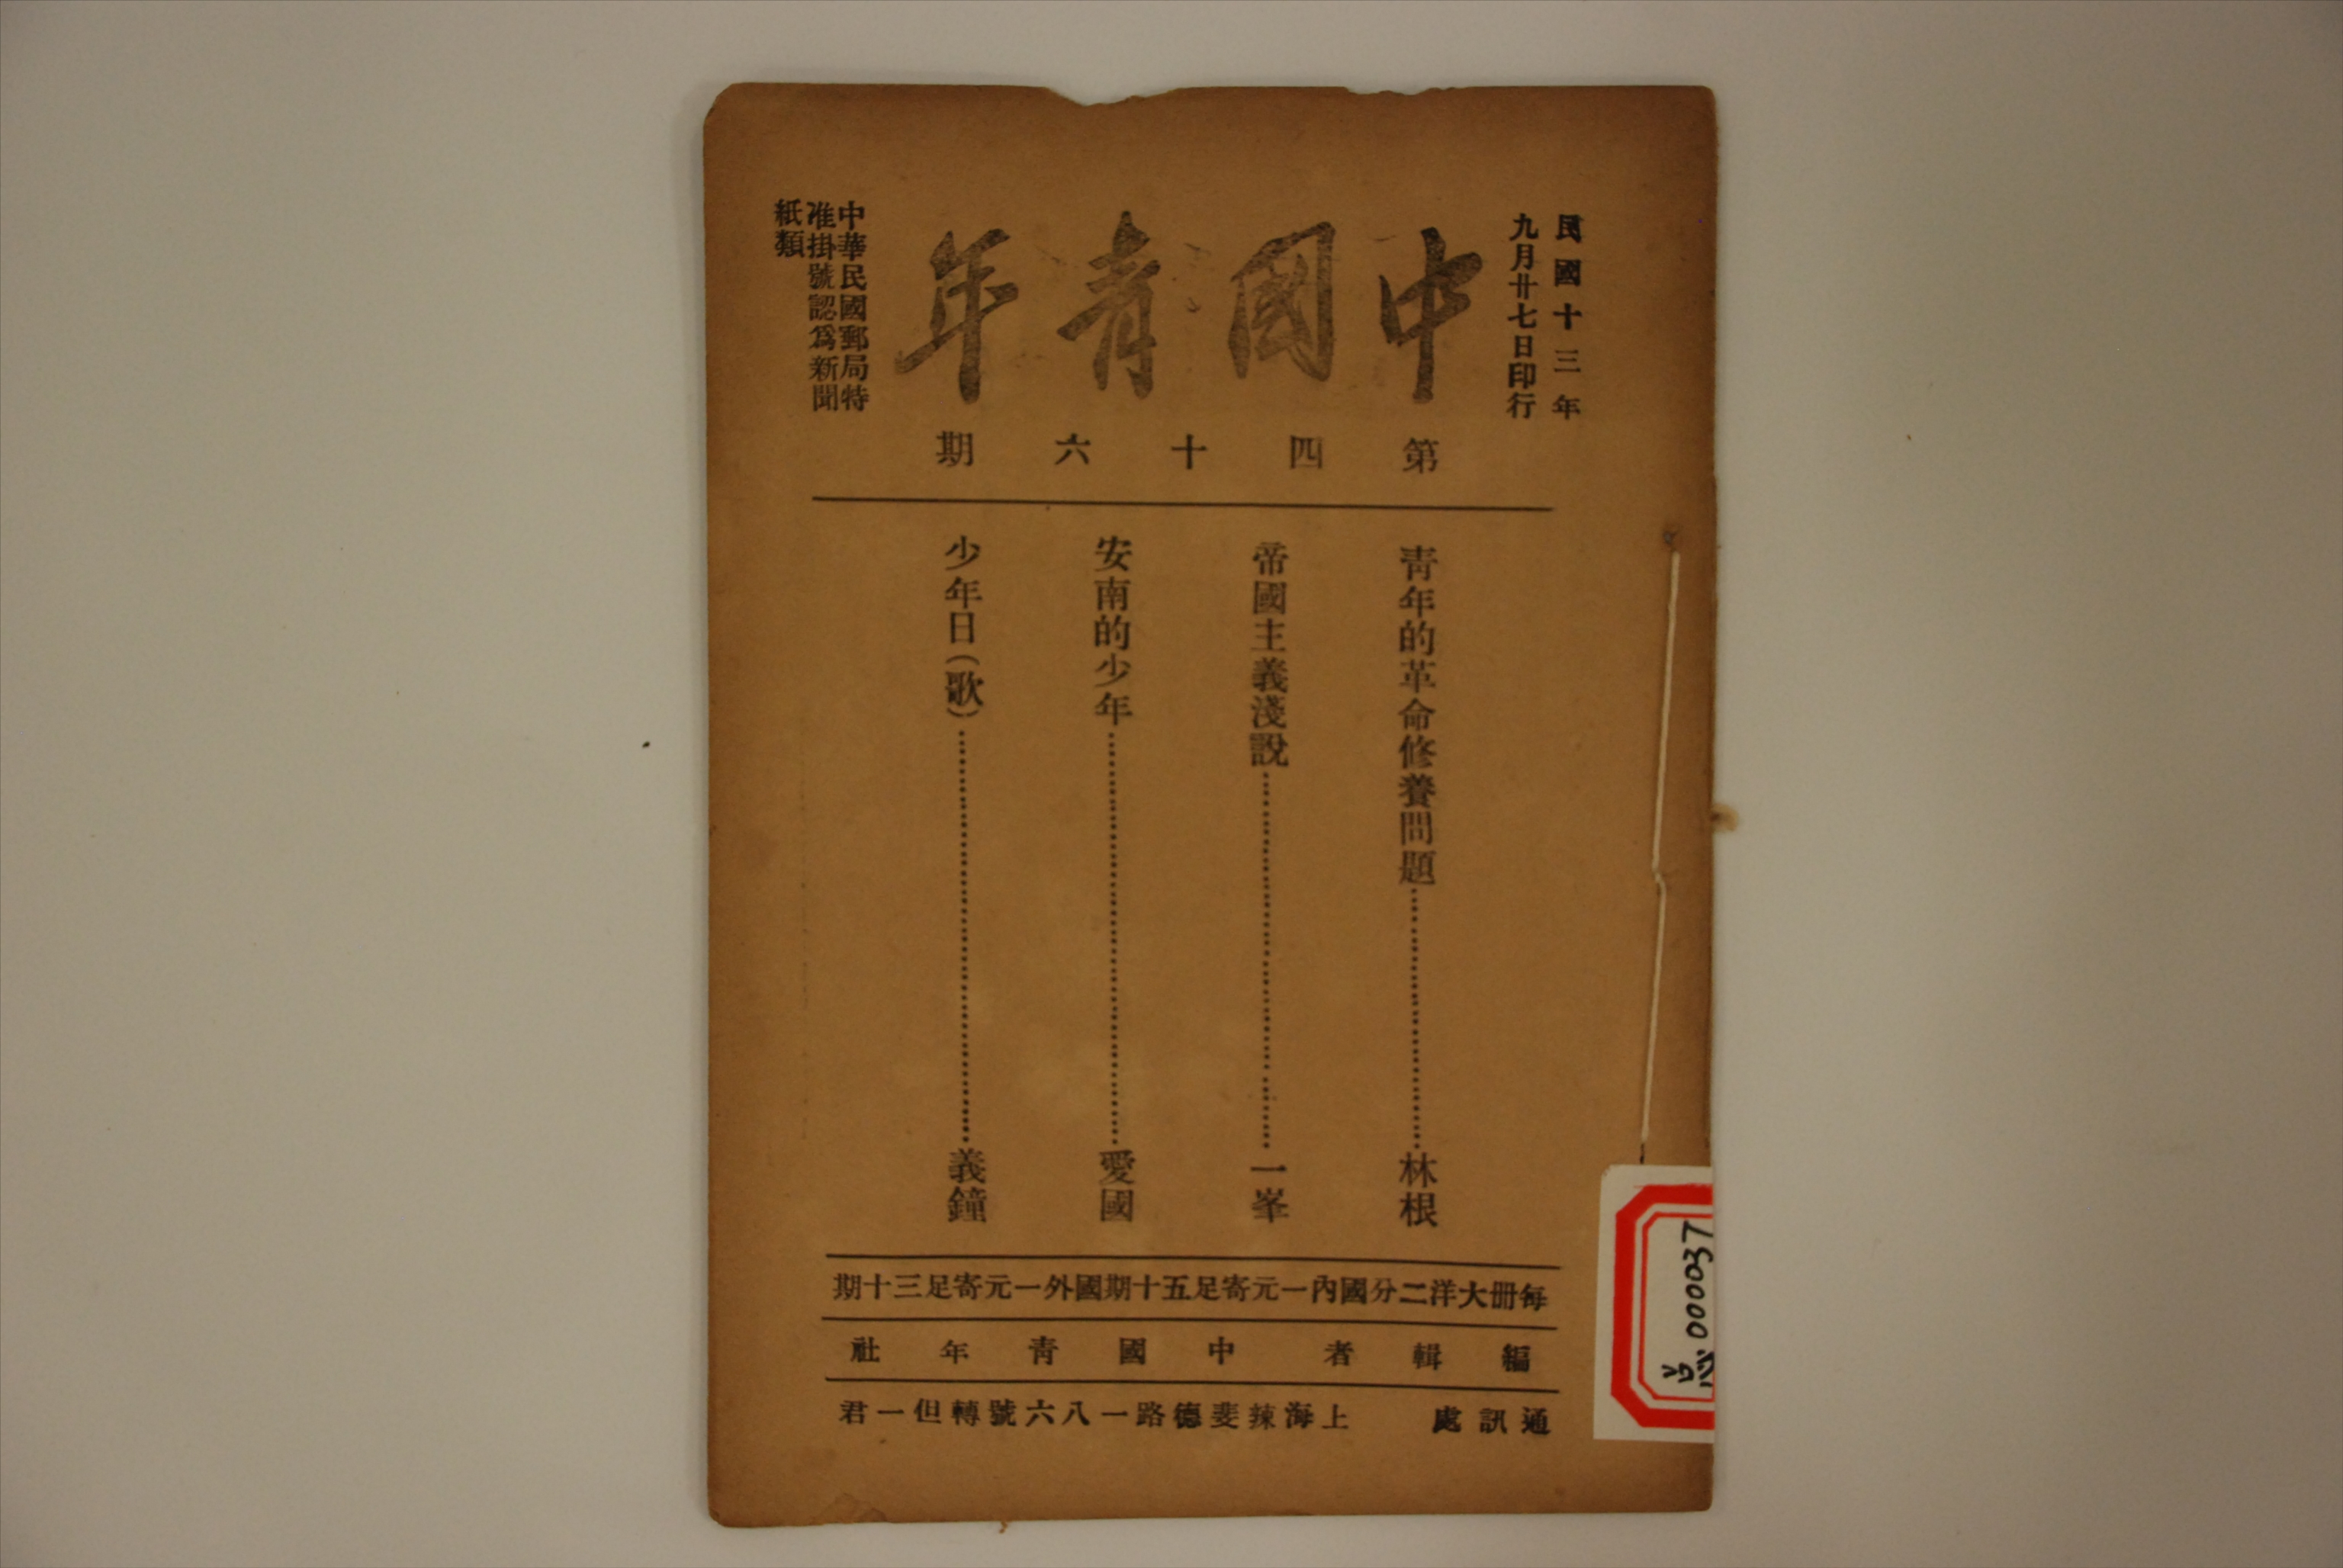 民國十三年
九月廿七日印行
中國青年
第四十六期
中華民國郵局特
准掛號認爲新聞
紙類
青年的革命修養問題……林根
帝國主義淺說……一峯
安南的少年……愛國
少年日(歌)……義鐘
每册大洋二分國內一元寄足五十期國外一元寄足三十期
編輯者 中國青年社
通訊處 上海辣斐德路一八六號轉但一君
000037